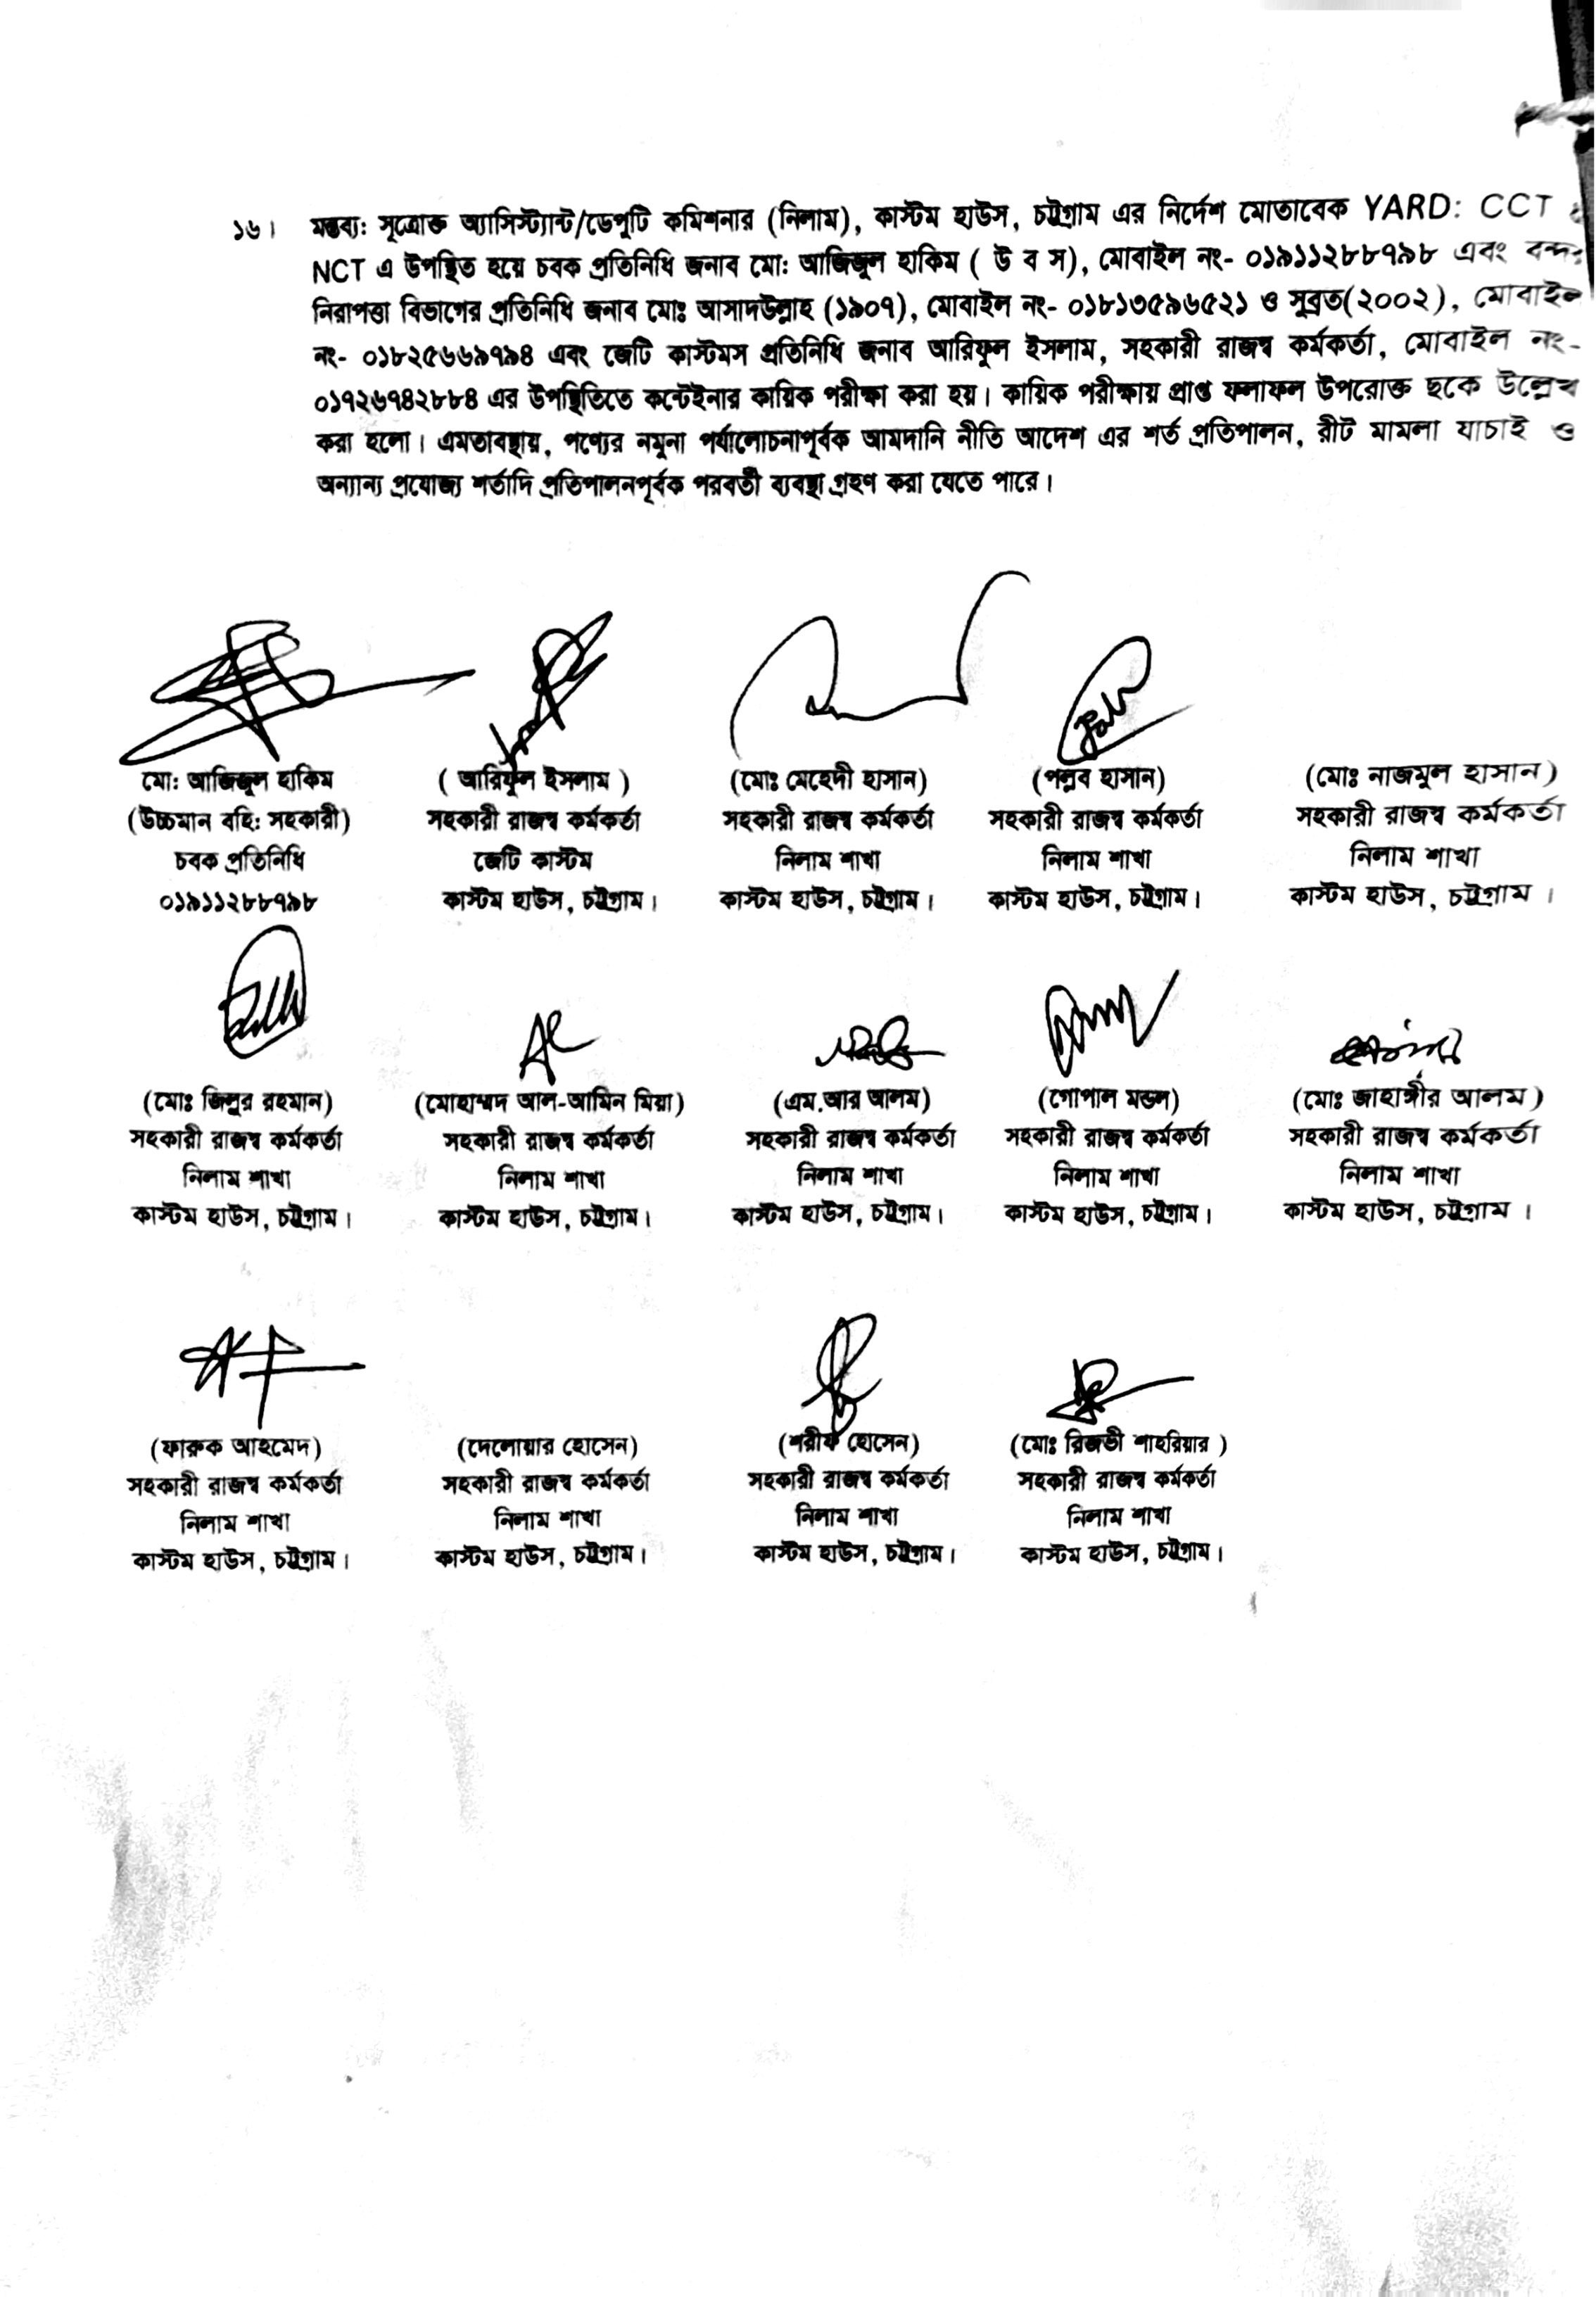 ১৬। মন্তব্য: সূত্রোক্ত অ্যাসিস্ট্যান্ট/ডেপুটি কমিশনার (নিলাম), কাস্টম হাউস, চট্টগ্রাম এর নির্দেশ মোতাবেক YARD: CCT
NCT এ উপস্থিত হয়ে চবক প্রতিনিধি জনাব মো: আজিজুল হাকিম ( উ ব স), মোবাইল নং- ০১৯১১২৮৮৭৯৮ এবং বন্দর
নিরাপত্তা বিভাগের প্রতিনিধি জনাব মোঃ আসাদউল্লাহ (১৯০৭), মোবাইল নং- ০১৮১৩৫৯৬৫২১ ও সুব্রত(২০০২), মোবাইল
নং- ০১৮২৫৬৬৯৭৯৪ এবং জেটি কাস্টমস প্রতিনিধি জনাব আরিফুল ইসলাম, সহকারী রাজস্ব কর্মকর্তা, মোবাইল নং-
০১৭২৬৭৪২৮৮৪ এর উপস্থিতিতে কন্টেইনার কায়িক পরীক্ষা করা হয়। কায়িক পরীক্ষায় প্রাপ্ত ফলাফল উপরোক্ত ছকে উল্লেখ
করা হলো। এমতাবস্থায়, পণ্যের নমুনা পর্যালোচনাপূর্বক আমদানি নীতি আদেশ এর শর্ত প্রতিপালন, রীট মামলা যাচাই ও
অন্যান্য প্রযোজ্য শর্তাদি প্রতিপালনপূর্বক পরবর্তী ব্যবস্থা গ্রহণ করা যেতে পারে।
মো: আজিজুল হাকিম ( আরিফুল ইসলাম ) (মোঃ মেহেদী হাসান) (পল্লব হাসান) (মোঃ নাজমুল হাসান)
(উচ্চমান বহি: সহকারী) সহকারী রাজস্ব কর্মকর্তা সহকারী রাজস্ব কর্মকর্তা সহকারী রাজস্ব কর্মকর্তা সহকারী রাজস্ব কর্মকর্তা
চবক প্রতিনিধি জেটি কাস্টম নিলাম শাখা নিলাম শাখা নিলাম শাখা
০১৯১১২৮৮৭৯৮ কাস্টম হাউস, চট্টগ্রাম। কাস্টম হাউস, চট্টগ্রাম। কাস্টম হাউস, চট্টগ্রাম। কাস্টম হাউস, চট্টগ্রাম।
(মোঃ জিলুর রহমান) (মোহাম্মদ আল-আমিন মিয়া) (এম.আর আলম) (গোপাল মন্ডল) (মোঃ জাহাঙ্গীর আলম)
সহকারী রাজস্ব কর্মকর্তা সহকারী রাজস্ব কর্মকর্তা সহকারী রাজস্ব কর্মকর্তা সহকারী রাজস্ব কর্মকর্তা সহকারী রাজস্ব কর্মকর্তা
নিলাম শাখা নিলাম শাখা নিলাম শাখা নিলাম শাখা নিলাম শাখা
কাস্টম হাউস, চট্টগ্রাম। কাস্টম হাউস, চট্টগ্রাম। কাস্টম হাউস, চট্টগ্রাম। কাস্টম হাউস, চট্টগ্রাম। কাস্টম হাউস, চট্টগ্রাম।
(ফারুক আহমেদ) (দেলোয়ার হোসেন) (শরীফ হোসেন) (মোঃ রিজভী শাহরিয়ার )
সহকারী রাজস্ব কর্মকর্তা সহকারী রাজস্ব কর্মকর্তা সহকারী রাজস্ব কর্মকর্তা সহকারী রাজস্ব কর্মকর্তা
নিলাম শাখা নিলাম শাখা নিলাম শাখা নিলাম শাখা
কাস্টম হাউস, চট্টগ্রাম। কাস্টম হাউস, চট্টগ্রাম। কাস্টম হাউস, চট্টগ্রাম। কাস্টম হাউস, চট্টগ্রাম।